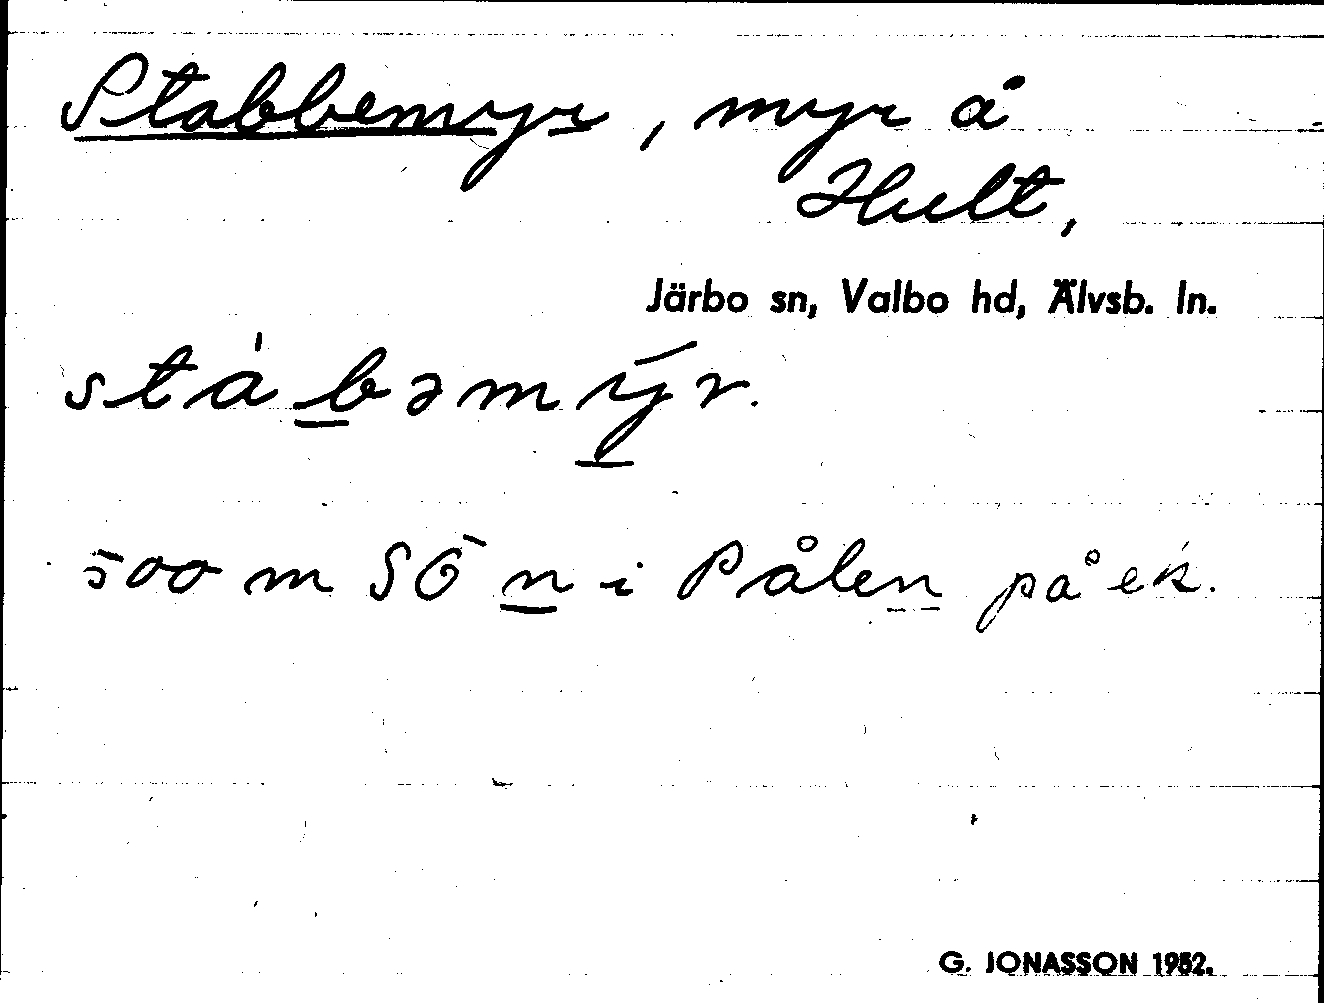 Stabbemyr, myr å
Hult,
Järbo sn, Valbo hd, Älvsb. ln.
stàbəmȳr.
500 m SÖ n i Pålen på ek.
G. JONASSON 1952.